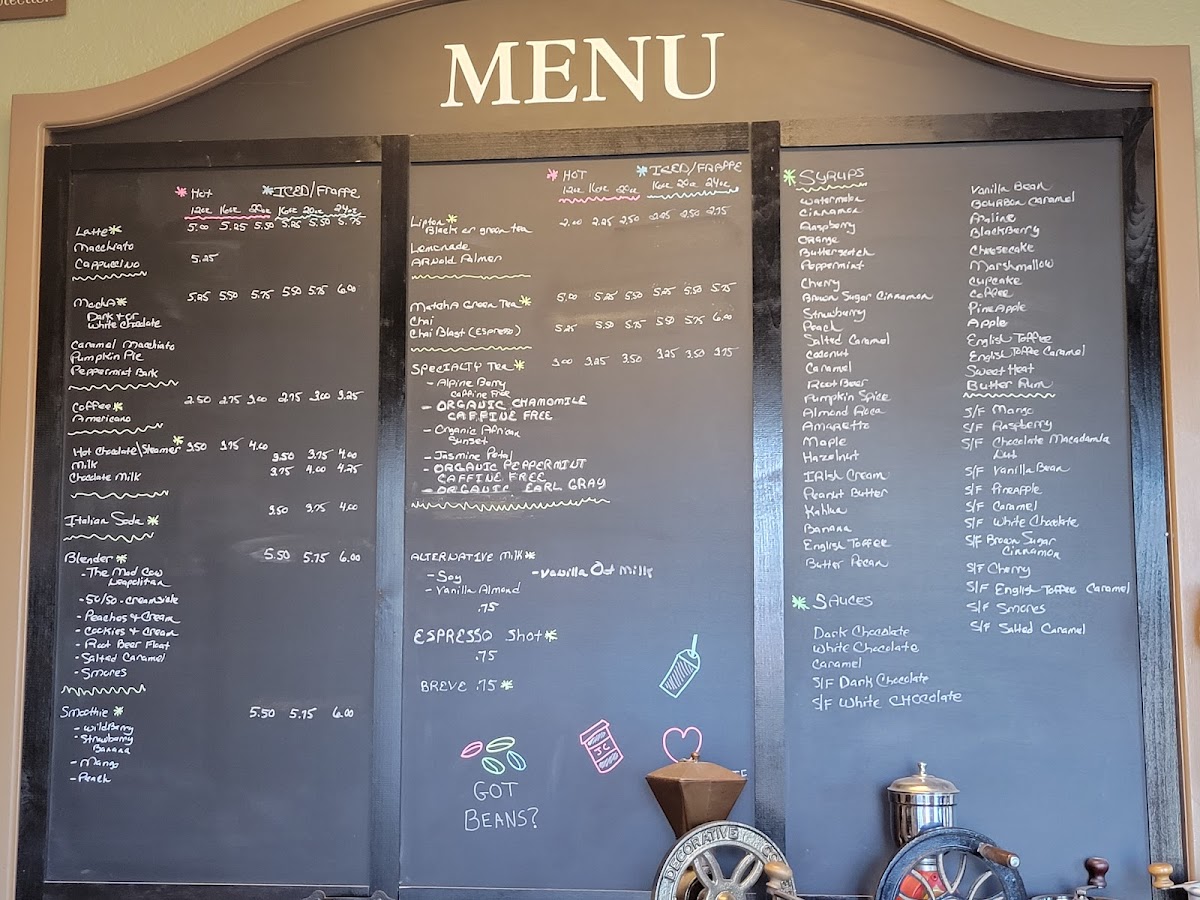 MENU
HOT ICED/FRAPPE
12oz 16oz 20oz 16oz 20oz 24oz
Latte 5.00 5.25 5.50 5.25 5.50 5.75
Macchiato
Cappuccino 5.25
Mocha 5.25 5.50 5.75 5.50 5.75 6.00
Dark & or
White Chocolate
Caramel Macchiato
Pumpkin Pie
Peppermint Bark
Coffee 2.50 2.75 3.00 2.75 3.00 3.25
Americano
Hot Chocolate\Steamer 3.50 3.75 4.00
Milk 3.50 3.75 4.00
Chocolate Milk 3.75 4.00 4.25
Italian Soda 3.50 3.75 4.00
Blender 5.50 5.75 6.00
- The Mad Cow
Neapolitan
- 50/50 - creamsicle
- Peaches & Cream
- Cookies & Cream
- Root Beer Float
- Salted Caramel
- Smores
Smoothie 5.50 5.75 6.00
- WildBerry
- Strawberry
Banana
- Mango
- Peach
HOT ICED/FRAPPE
12oz 16oz 20oz 16oz 20oz 24oz
Lipton 2.00 2.25 2.50 2.25 2.50 2.75
Black or green tea
Lemonade
ARNold Palmer
MatchA Green Tea 5.00 5.25 5.50 5.25 5.50 5.75
Chai
Chai Blast (Espresso) 5.25 5.50 5.75 5.50 5.75 6.00
SPECIALTY Tea 3.00 3.25 3.50 3.25 3.50 3.75
- Alpine Berry
Caffine Free
- ORGANIC CHAMOMILE
CAFFINE FREE
- Organic African
Sunset
- Jasmine Petal
- ORGANIC PEPPERMINT
CAFFINE FREE
- ORGANIC EARL GRAY
ALTERNATIVE Milk
- Soy - Vanilla Oat Milk
- Vanilla Almond
.75
ESPRESSO Shot
.75
BREVE .75
JC
GOT
BEANS?
SYRUPS
Watermelon
Cinnamon
Raspberry
Orange
Butterscotch
Peppermint
Cherry
Brown Sugar Cinnamon
Strawberry
Peach
Salted Caramel
Coconut
Caramel
Root Beer
Pumpkin Spice
Almond Roca
Amaretto
Maple
Hazelnut
IRIsh Cream
Peanut Butter
Kahlua
Banana
English Toffee
Butter Pecan
SAUCES
Dark Chocolate
White Chocolate
Caramel
S/F Dark Chocolate
S/F White CHOcolate
Vanilla Bean
BOURBon Caramel
Praline
BlackBerry
Cheesecake
Marshmallow
Cupcake
Coffee
PineApple
Apple
English Toffee
English Toffee Caramel
Sweet Heat
Butter Rum
S/F Mango
S/F Raspberry
S/F Chocolate Macadamia
Nut
S/F Vanilla Bean
S/F Pineapple
S/F Caramel
S/F White Chocolate
S/F Brown Sugar
Cinnamon
S/F Cherry
S/F English Toffee Caramel
S/F Smores
S/F Salted Caramel
DECORATIVE